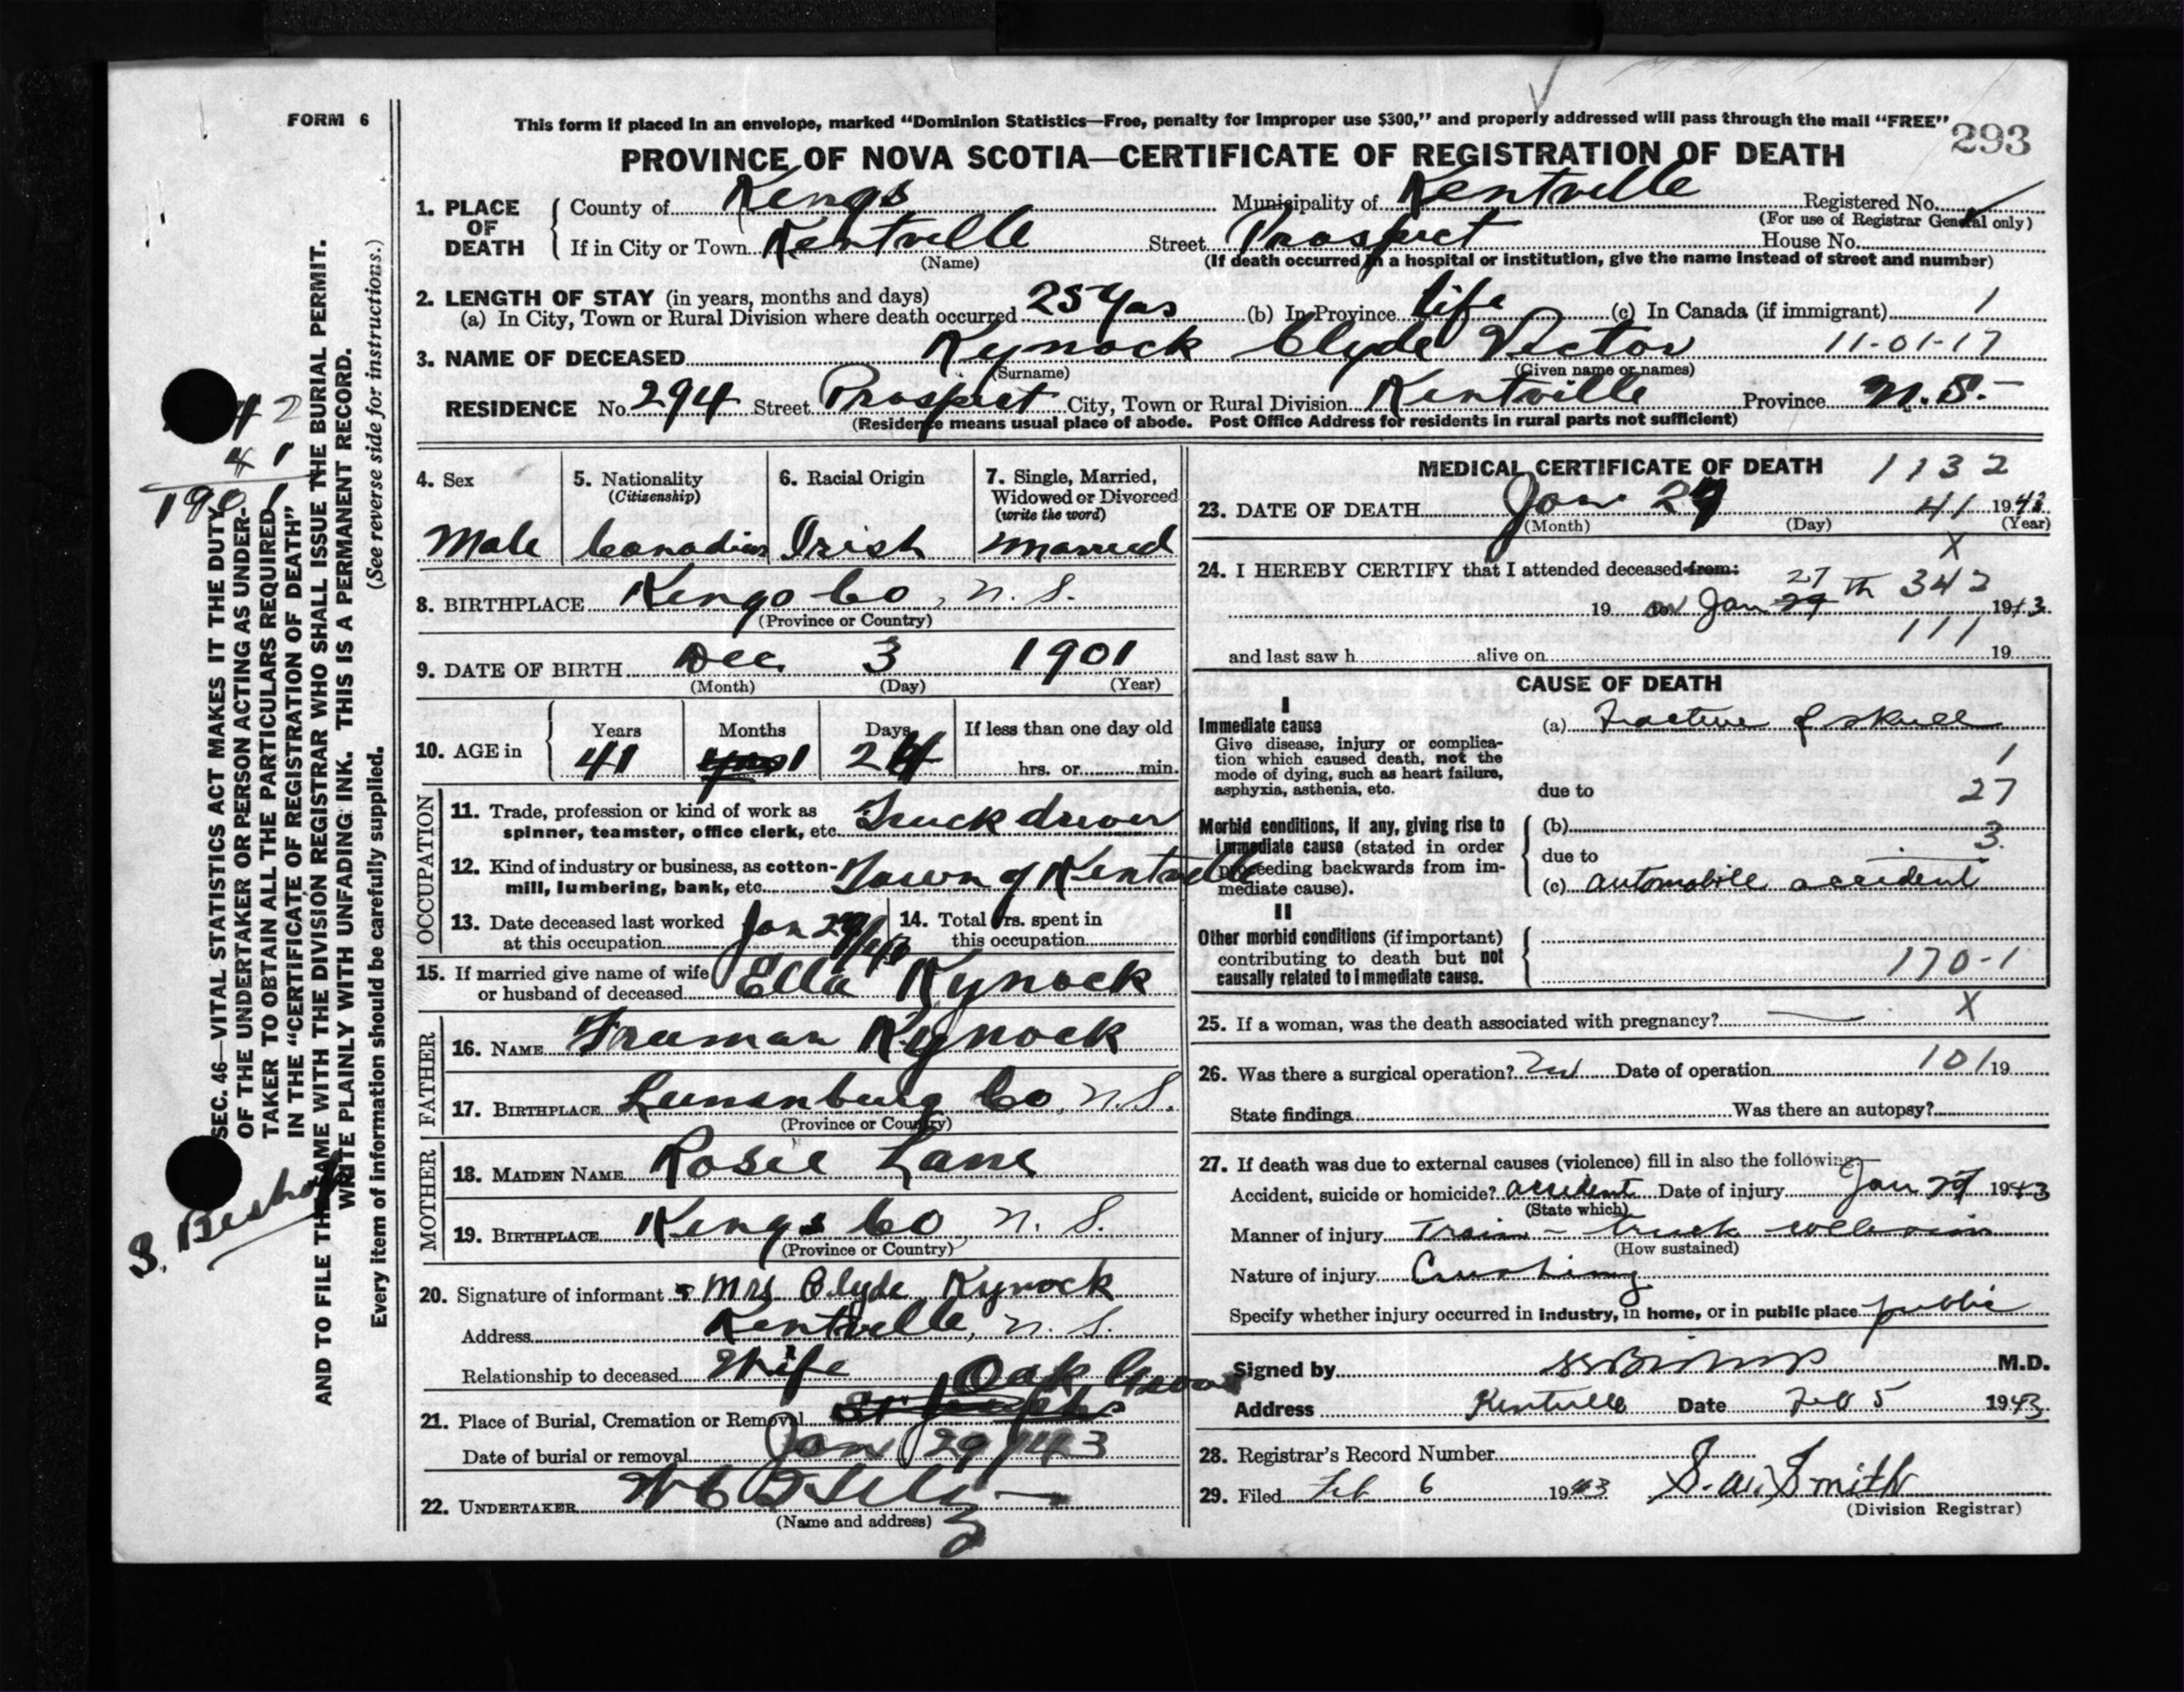 FORM 6
This form if placed in an envelope, marked "Dominion Statistics—Free, penalty for improper use $300," and properly addressed will pass through the mail "FREE"
293
PROVINCE OF NOVA SCOTIA—CERTIFICATE OF REGISTRATION OF DEATH
1. PLACE OF DEATH
County of Kings Municipality of Kentville Registered No.
(For use of Registrar General only)
If in City or Town Kentville Street Prospect House No.
(Name) (If death occurred in a hospital or institution, give the name instead of street and number)
2. LENGTH OF STAY (in years, months and days)
(a) In City, Town or Rural Division where death occurred 25 yrs (b) In Province life (c) In Canada (if immigrant) 1
3. NAME OF DECEASED Kynock Clyde Victor 11-01-17
(Surname) (Given name or names)
RESIDENCE No. 294 Street Prospect City, Town or Rural Division Kentville Province N.S.
(Residence means usual place of abode. Post Office Address for residents in rural parts not sufficient)
4. Sex 5. Nationality (Citizenship) 6. Racial Origin 7. Single, Married, Widowed or Divorced (write the word)
Male Canadian Irish Married
8. BIRTHPLACE Kings Co, N.S.
(Province or Country)
9. DATE OF BIRTH Dec 3 1901
(Month) (Day) (Year)
10. AGE in Years Months Days If less than one day old
41 1 24 hrs. or min.
OCCUPATION
11. Trade, profession or kind of work as spinner, teamster, office clerk, etc. Truck driver
12. Kind of industry or business, as cotton-mill, lumbering, bank, etc. Town of Kentville
13. Date deceased last worked at this occupation Jan 29/43 14. Total Yrs. spent in this occupation
15. If married give name of wife or husband of deceased Ella Kynock
FATHER
16. NAME Freeman Kynock
17. BIRTHPLACE Lunenburg Co, N.S.
(Province or Country)
MOTHER
18. MAIDEN NAME Rosie Lane
19. BIRTHPLACE Kings Co N. S.
(Province or Country)
20. Signature of informant Mrs Clyde Kynock
Address Kentville, N. S.
Relationship to deceased Wife
Oak Grove
21. Place of Burial, Cremation or Removal St Josephs
Date of burial or removal Jan 29/43
22. UNDERTAKER
(Name and address)
MEDICAL CERTIFICATE OF DEATH 1132
23. DATE OF DEATH Jan 27 41 1943
(Month) (Day) (Year)
X
24. I HEREBY CERTIFY that I attended deceased from:
19 on Jan 29 27 th 342 1943
111
and last saw h alive on 19
CAUSE OF DEATH
I
Immediate cause (a) Fracture of skull
Give disease, injury or complication which caused death, not the mode of dying, such as heart failure, asphyxia, asthenia, etc.
1
due to 27
Morbid conditions, if any, giving rise to immediate cause (stated in order proceeding backwards from immediate cause).
(b) 3.
due to
(c) automobile accident
II
Other morbid conditions (if important) contributing to death but not causally related to immediate cause.
170-1
25. If a woman, was the death associated with pregnancy? X
26. Was there a surgical operation? Date of operation 101 19
State findings Was there an autopsy?
27. If death was due to external causes (violence) fill in also the following:
Accident, suicide or homicide? accident Date of injury Jan 27 1943
(State which)
Manner of injury Train - truck collision
(How sustained)
Nature of injury Crushing
Specify whether injury occurred in industry, in home, or in public place public
Signed by M.D.
Address Kentville Date Feb 5 1943
28. Registrar's Record Number
29. Filed Feb 6 1943 S. W. Smith
(Division Registrar)
SEC. 46—VITAL STATISTICS ACT MAKES IT THE DUTY
OF THE UNDERTAKER OR PERSON ACTING AS UNDER-
TAKER TO OBTAIN ALL THE PARTICULARS REQUIRED
IN THE "CERTIFICATE OF REGISTRATION OF DEATH"
AND TO FILE THE SAME WITH THE DIVISION REGISTRAR WHO SHALL ISSUE THE BURIAL PERMIT.
WRITE PLAINLY WITH UNFADING INK. THIS IS A PERMANENT RECORD.
Every item of information should be carefully supplied. (See reverse side for instructions.)
42
41
1901